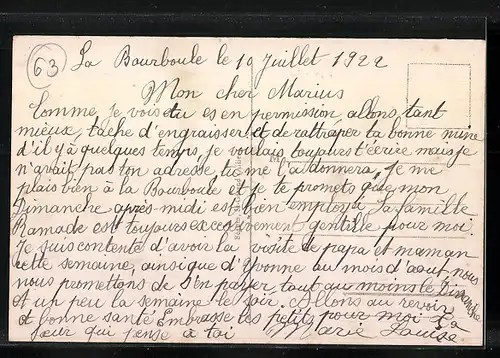 63
La Bourboule le 19 Juillet 1922
Mon cher Marius
Comme je vois tu es en permission allons, tant
mieux, tache d'engraisser et de rattraper ta bonne mine
d'il y à quelques temps, je voulais toujours t'écrire mais je
n'avait pas ton adresse, tu me l'a donnera, je me
plais bien à la Bourboule et je te promets que mon
Dimanche après midi est bien employé. La famille
Ramade est toujours excessivement gentille pour moi.
Je suis contente d'avoir la visite de papa et maman
cette semaine, ainsi que d'Yvonne au mois d'aout, nous
nous promettons de s'en payer tout au moins le Dimanche
et un peu la semaine le soir. Allons au revoir
et bonne santé Embrasse les petits pour moi Ta
sœur qui pense à toi Marie Louise